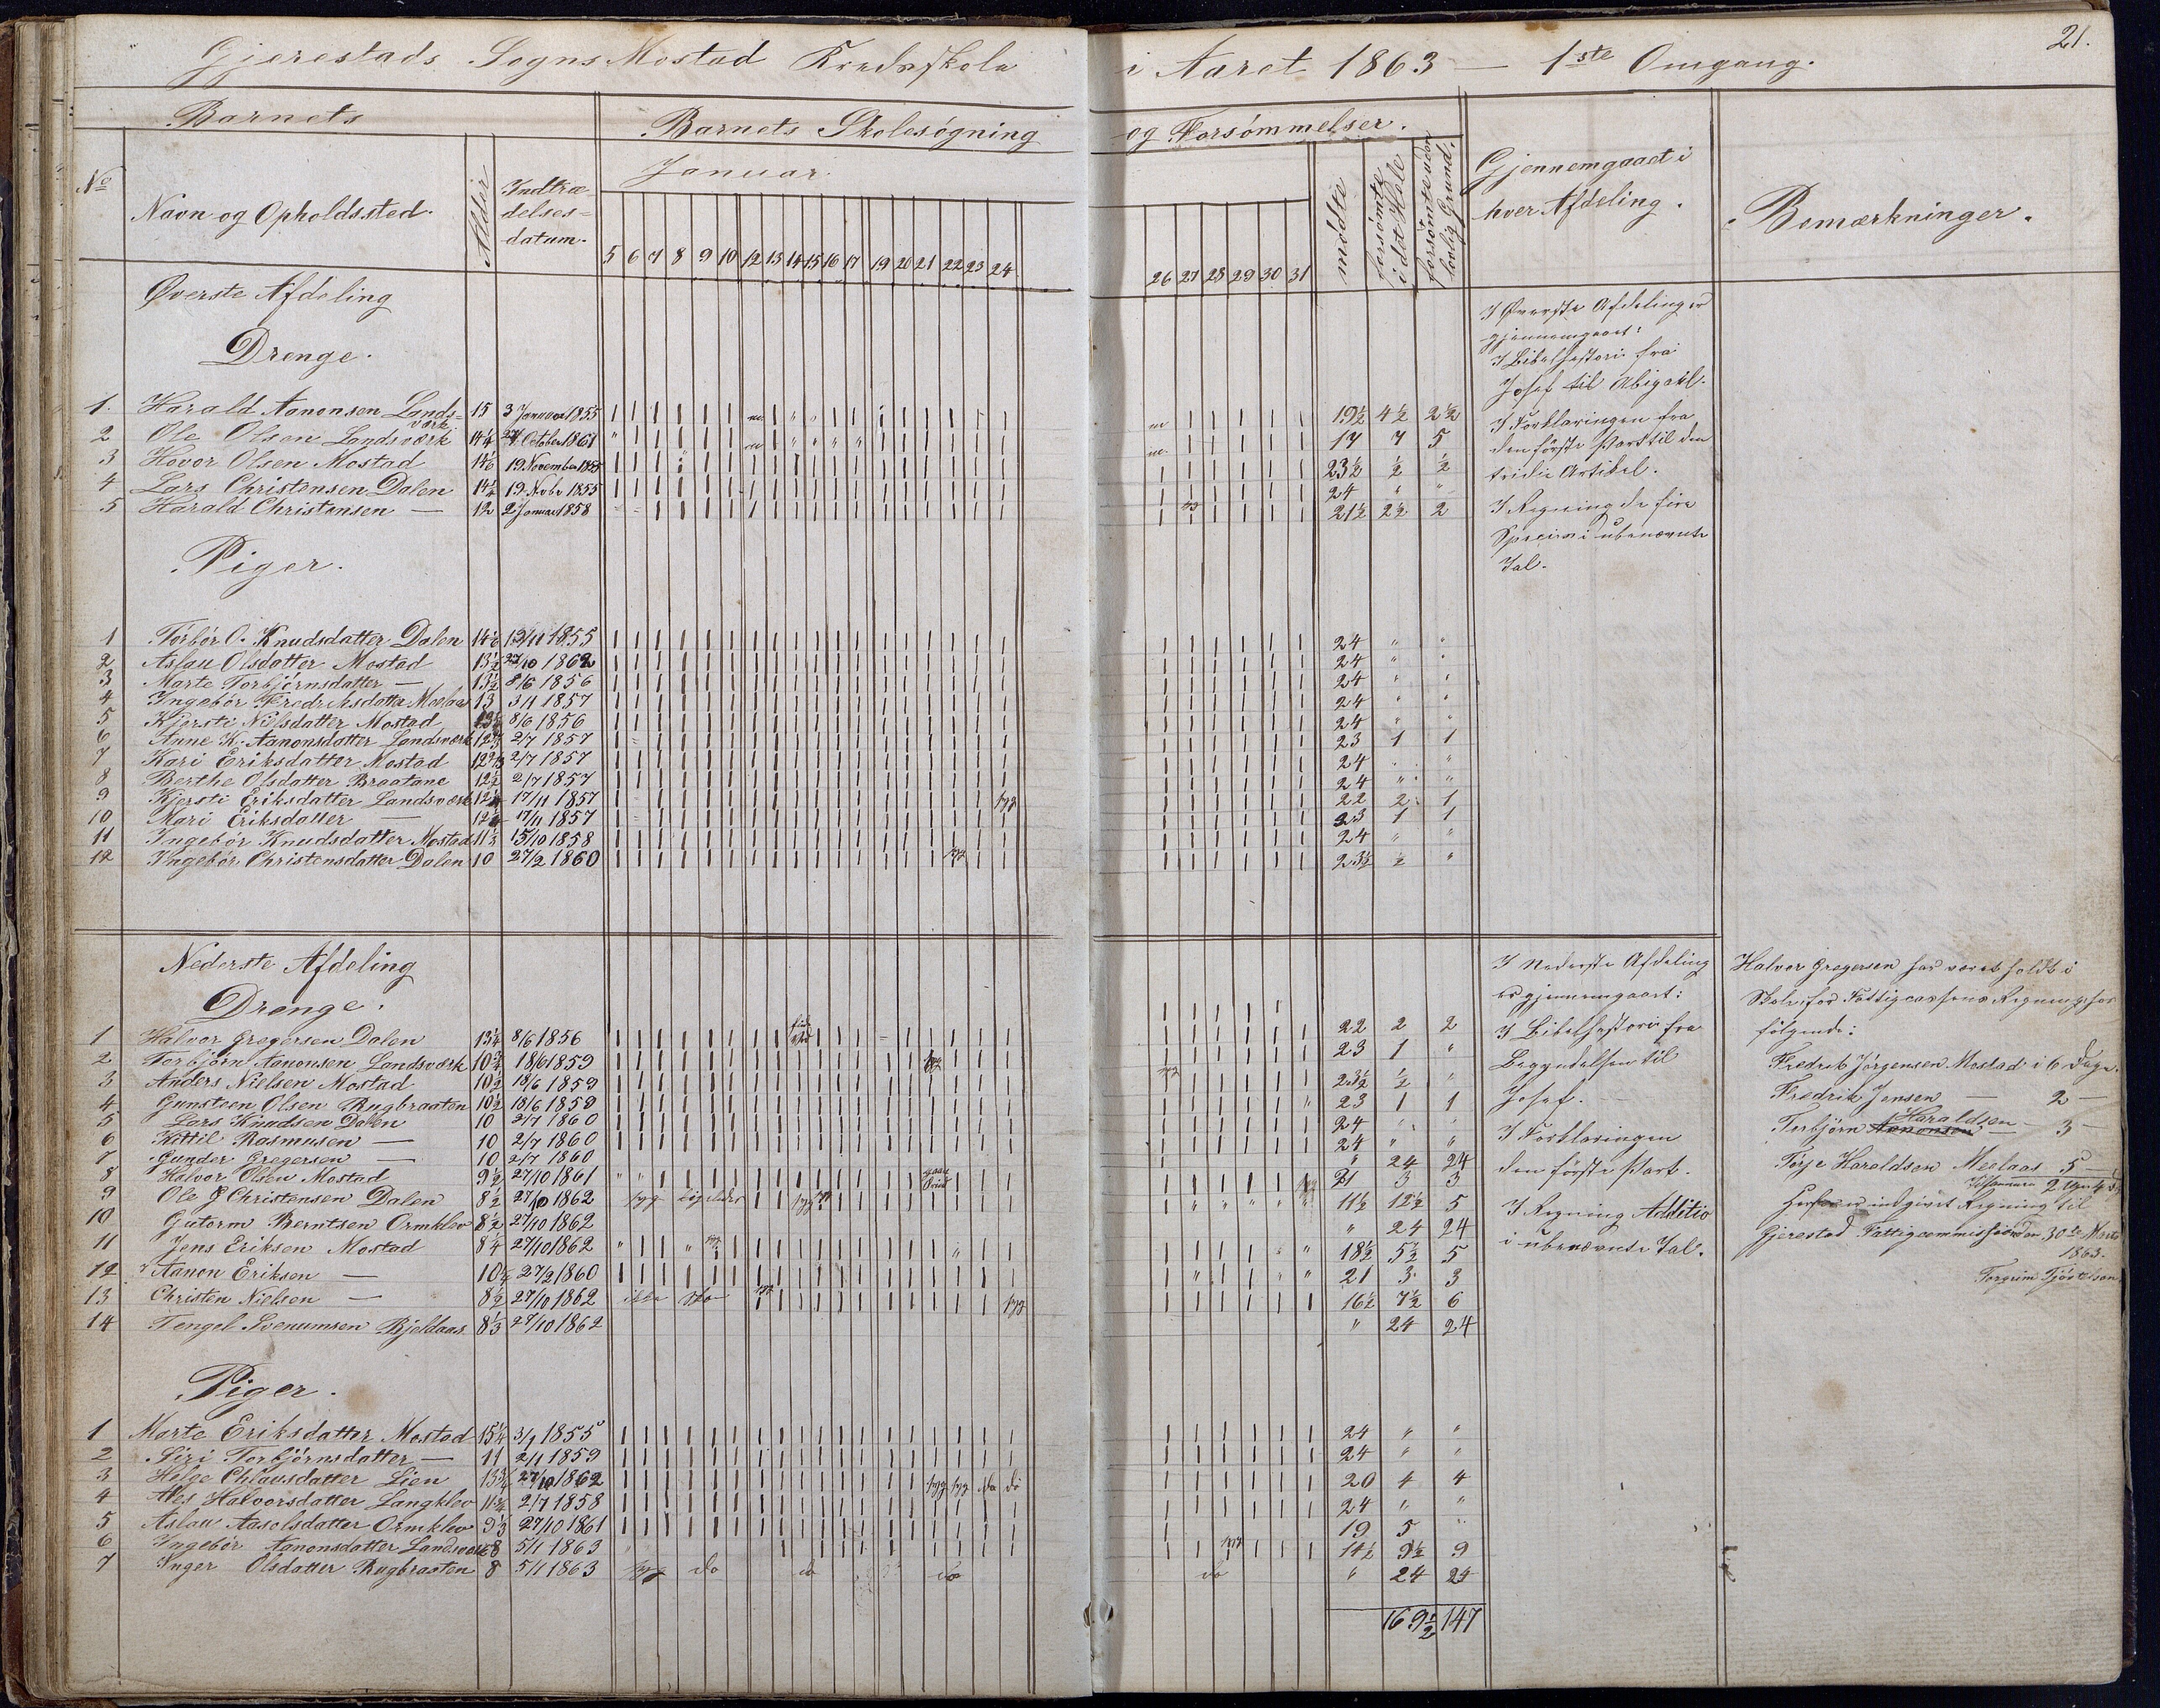 21.
Gjerestads Sogns Mostad Kredsskole i Aaret 1863 — 1ste Omgang.
Barnets
Barnets Skolesøgning og Forsømmelser.
No
Navn og Opholdssted.
Alder
Indtræ-
delses-
datum.
Januar.
5 6 7 8 9 10 12 13 14 15 16 17 19 20 21 22 23 24 26 27 28 29 30 31
mødte
forsømte i det Hele
forsømte uden lovlig Grund.
Gjennemgaaet i
hver Afdeling.
Bemærkninger.
Øverste Afdeling
Drenge.
1. Harald Aanonsen Landsværk 15 3 Januar 1855 19½ 4½ 2½
2 Ole Olsen Landsværk 14¼ 27 October 1861 17 7 5
3 Hovor Olsen Mostad 14⅙ 19 November 1855 23½ ½ ½
4 Lars Christensen Dalen 14¼ 19 Nvbr 1855 24 " "
5 Harald Christensen — 12 2 Januar 1858 21½ 2½ 2
I Øverste Afdeling er
gjennemgaaet:
I Bibelhistorie fra
Josef til Abigail.
I Forklaringen fra
den første Part til den
tredie Artikel.
I Regning de fire
Species i ubenævnte
Tal.
Piger.
1 Torbør O. Knudsdatter Dalen 14⅙ 19/11 1855 24 " "
2 Aslau Olsdatter Mostad 13½ 27/10 1862 24 " "
3 Marte Torbjörnsdatter — 13½ 8/6 1856 24 " "
4 Ingebør Fredriksdatter Moelaas 13 3/1 1857 24 " "
5 Kjersti Nielsdatter Mostad 13½ 8/6 1856 24 " "
6 Anne K. Aanonsdatter Landsværk 2/7 1857 23 1 1
7 Kari Eriksdatter Mostad 2/7 1857 24 " "
8 Berthe Olsdatter Braatane 12½ 2/7 1857 24 " "
9 Kjersti Eriksdatter Landsværk 17/11 1857 syg 22 2 1
10 Mari Eriksdatter — 17/11 1857 23 1 1
11 Ingebør Knudsdatter Mostad 11⅓ 15/10 1858 24 " "
12 Ingebør Christensdatter Dalen 10 27/2 1860 syg 23½ ½ "
Nederste Afdeling
Drenge.
1 Halvor Gregersen Dalen 13¼ 8/6 1856 22 2 2
2 Torbjörn Aanonsen Landsværk 10¾ 18/6 1859 syg 23 1 "
3 Anders Nielsen Mostad 10½ 18/6 1859 syg 23½ ½ "
4 Gunsteen Olsen Rugbraaten 10½ 18/6 1859 23 1 1
5 Lars Knudsen Dalen 10 2/7 1860 24 " "
6 Kittil Rasmusen — 10 2/7 1860 24 " "
7 Gunder Gregersen — 10 2/7 1860 " 24 24
8 Halvor Olsen Mostad 9½ 27/10 1861 21 3 3
9 Ole G Christensen Dalen 8½ 27/10 1862 syg ligeledes syg 11½ 12½ 5
10 Gutorm Berntsen Ormklev 8½ 27/10 1862 " 24 24
11 Jens Eriksen Mostad 8¼ 27/10 1862 18½ 5½ 5
12 Aanon Eriksen — 10¼ 27/2 1860 21 3 3
13 Christen Nielsen — 8½ 27/10 1862 ikke Sko syg 16½ 7½ 6
14 Tengel Svenumsen Bjeldaas 8⅓ 27/10 1862 " 24 24
I Nederste Afdeling
er gjennemgaaet:
I Bibelhistorie fra
Begyndelsen til
Josef.
I Forklaringen
den første Part.
I Regning Additio
i ubenævnte Tal.
Halvor Gregersen har været holdt i
Skole for Fattigcassens Regning hos
følgende:
Fredrik Jörgensen Mostad i 6 Dage.
Fredrik Jensen — 2 —
Torbjörn Aanonsen Haraldsen — 3 —
Terje Haraldsen Meelaas 5 —
Herfor er indgivet Regning til
Gjerestad Fattigcommission den 30te Marts
1863.
Piger.
1 Marte Eriksdatter Mostad 15¼ 3/1 1855 24 " "
2 Siri Torbjörnsdatter — 11 2/1 1859 24 " "
3 Helge Chlausdatter Lien 13¾ 27/10 1862 syg syg do do 20 4 4
4 Ales Halvorsdatter Langklev 2/7 1858 24 " "
5 Aslau Aasolsdatter Ormklev 9⅓ 27/10 1861 19 5 "
6 Ingebør Aanonsdatter Landsværk 8 5/1 1863 syg 14½ 9½ 9
7 Inger Olsdatter Rugbraaten 8 5/1 1863 syg do do do do " 24 24
169½ 147